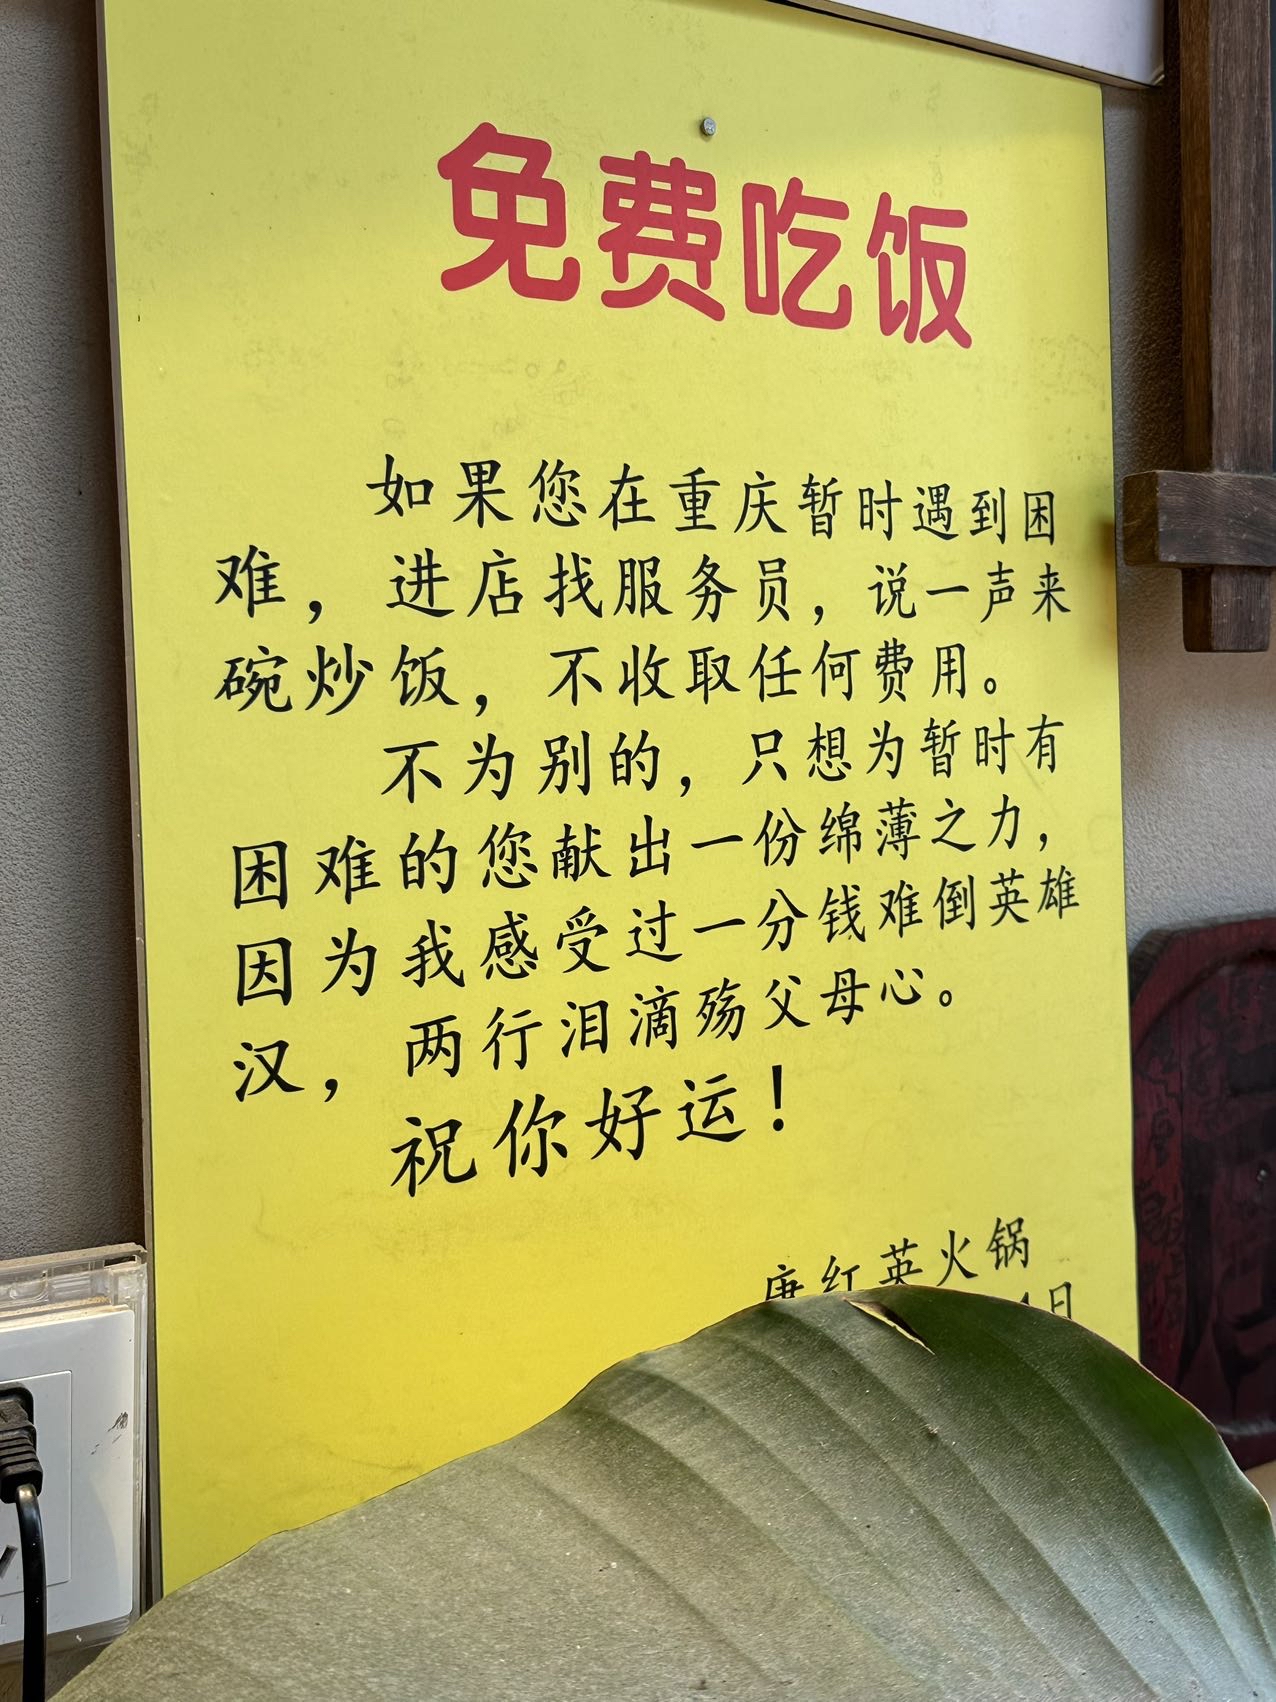 免费吃饭
如果您在重庆暂时遇到困
难，进店找服务员，说一声来
碗炒饭，不收取任何费用。
不为别的，只想为暂时有
困难的您献出一份绵薄之力，
因为我感受过一分钱难倒英雄
汉，两行泪滴殇父母心。
祝你好运！
唐红英火锅
1日